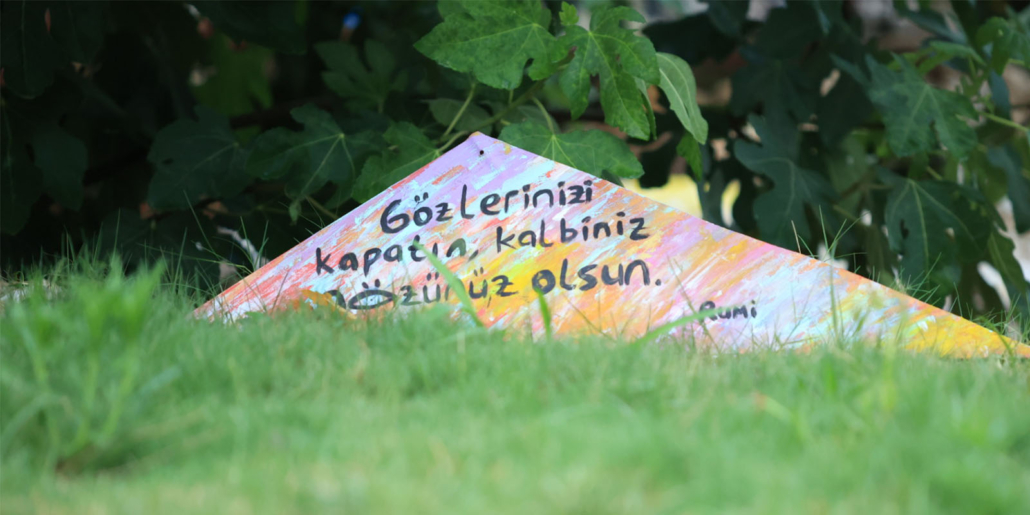 Gözlerinizi
kapatın, kalbiniz
gözünüz olsun.
Rumi